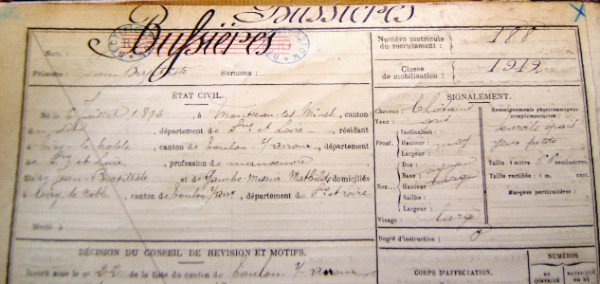 Bussières
Bussières
Nom :
Prénoms : Jean Baptiste Surnoms :
Numéro matricule du recrutement : 188
Classe de mobilisation : 1912
ÉTAT CIVIL.
Né le juillet 1893, à Montceau les Mines, canton
dudit, département de Sne et Loire, résidant
à Ciry le Noble, canton de Toulon s/ Arroux, département
de Sne et Loire, profession de manoeuvre
fils de Jean Baptiste et de Marie Mathilde, domiciliés
à Ciry le Noble, canton de Toulon s/ Arroux, département de Sne et Loire
Marié à
DÉCISION DU CONSEIL DE RÉVISION ET MOTIFS.
Inscrit sous le n° 22 de la liste du canton de Toulon s/ Arroux
SIGNALEMENT.
Cheveux : Châtains
Yeux :
Front. Inclinaison :
Hauteur :
Largeur :
Nez. Dos : moyen
Base :
Hauteur :
Saillie :
Largeur :
Visage : large
Renseignements physionomiques complémentaires :
Taille : 1 mètre 6 centimètres.
Taille rectifiée : 1 m. cent.
Marques particulières :
Degré d'instruction :
CORPS D'AFFECTATION.
NUMÉROS
AU CONTRÔLE
MATRICULE